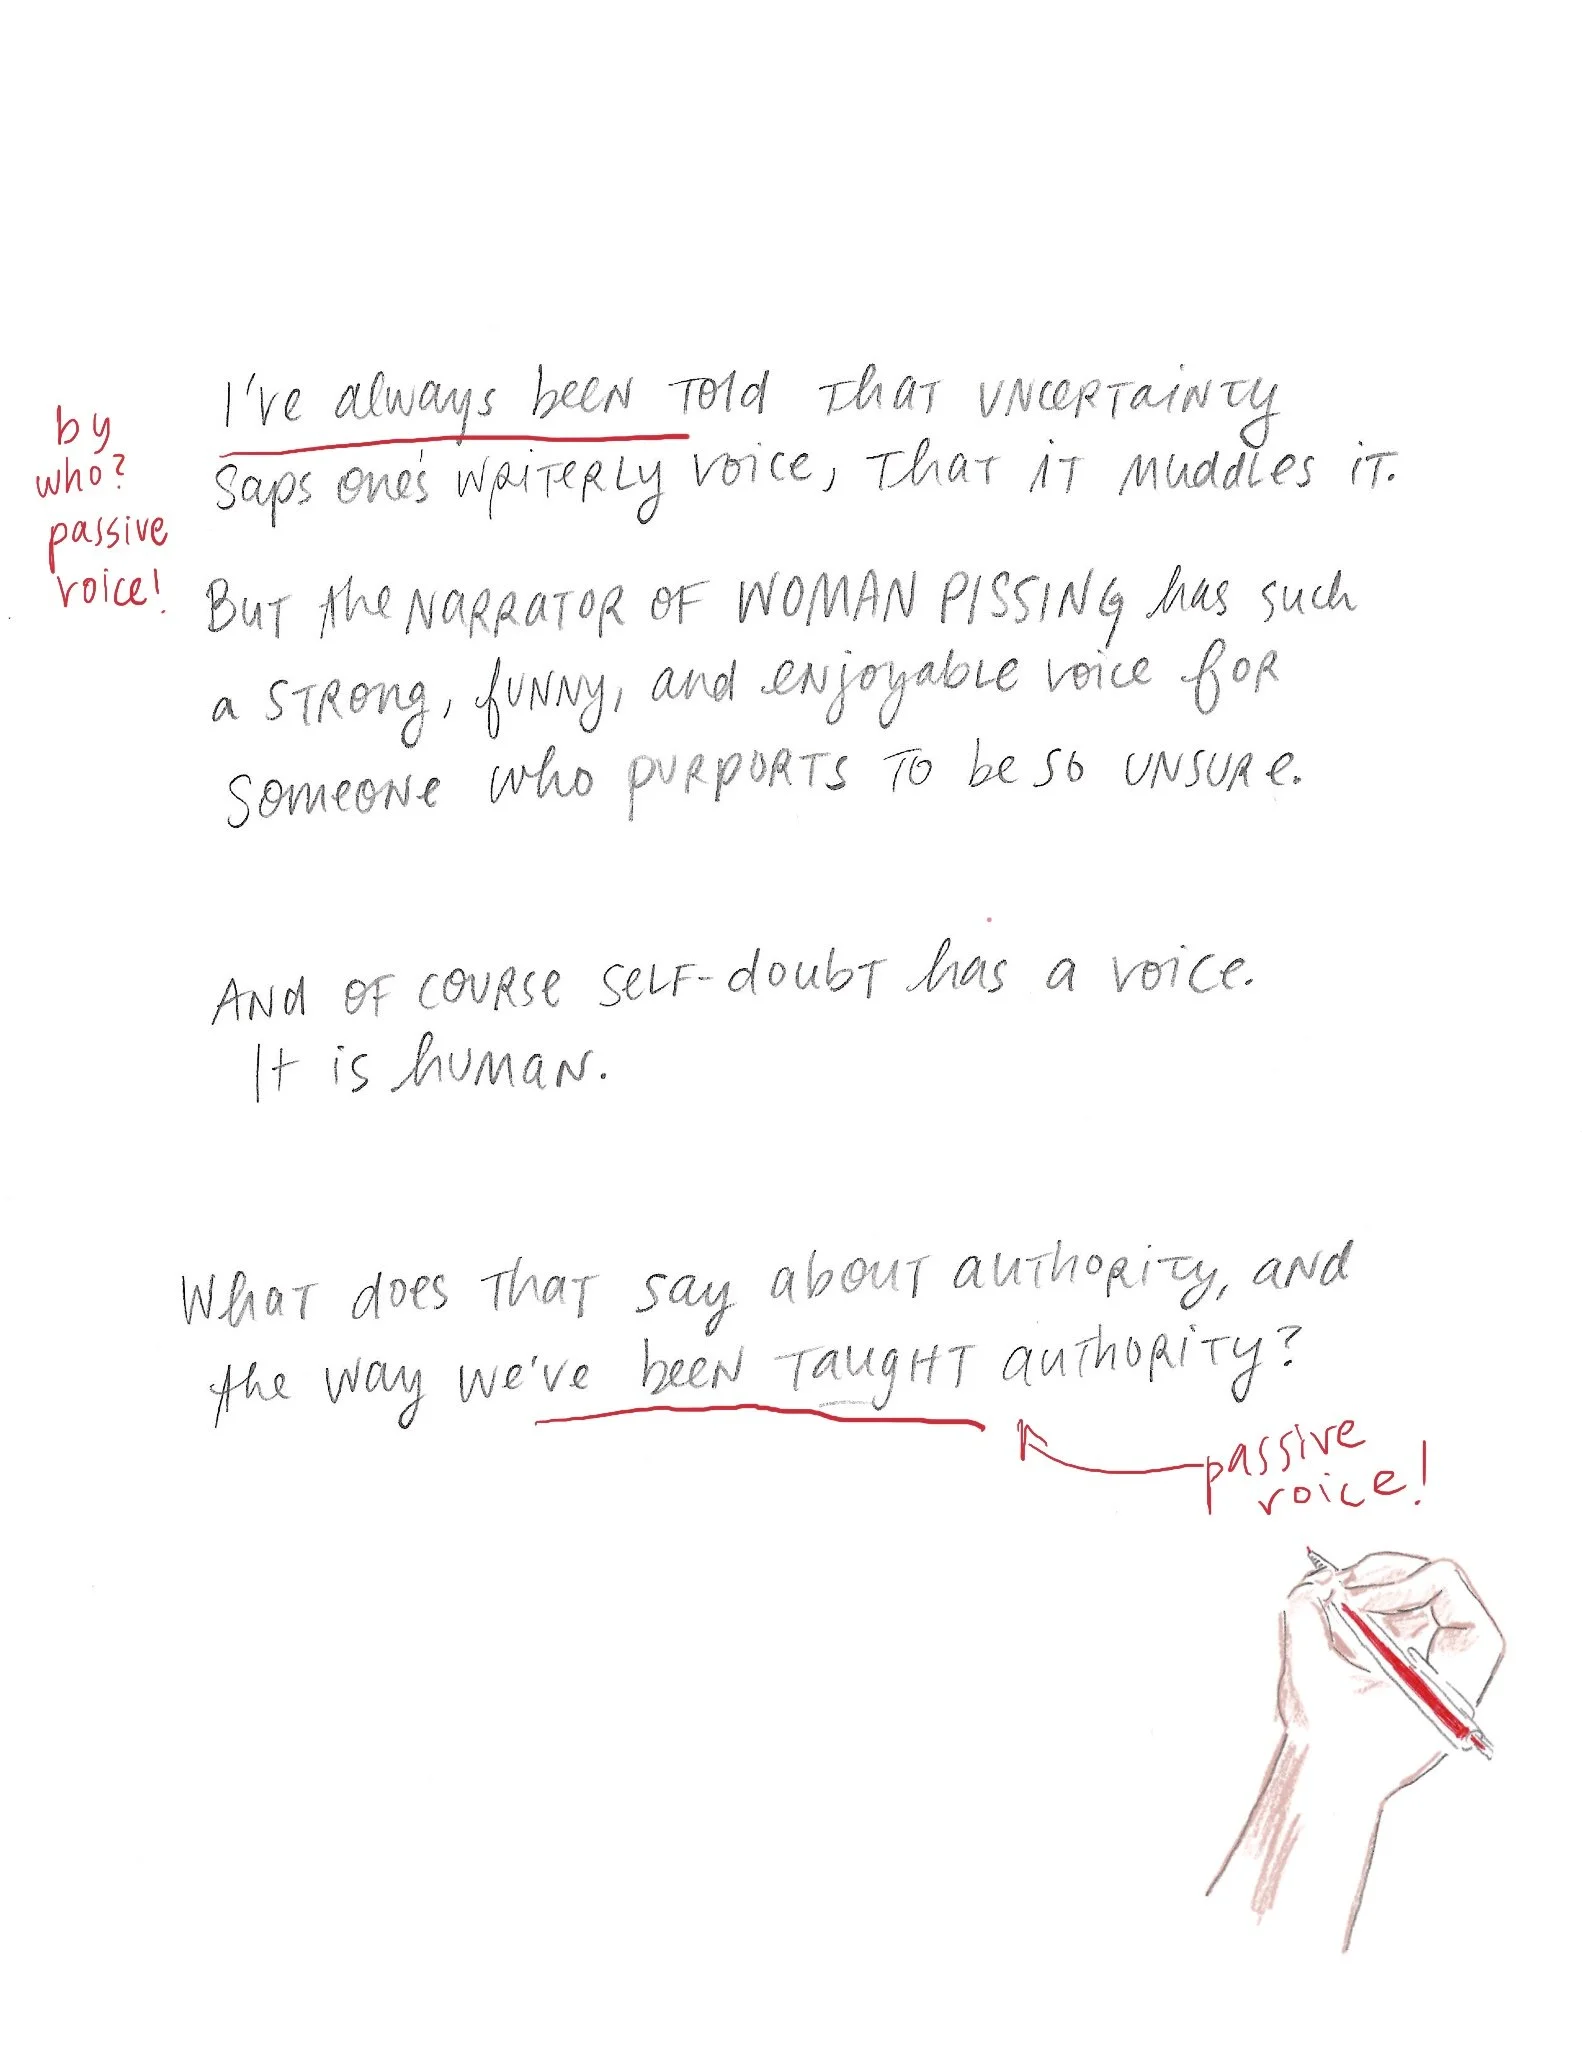 I've always been told that uncertainty
saps one's writerly voice, that it muddles it.
by
who?
passive
voice!
But the narrator of WOMAN PISSING has such
a strong, funny, and enjoyable voice for
someone who purports to be so unsure.
And of course self-doubt has a voice.
It is human.
What does that say about authority, and
the way we've been taught authority?
passive
voice!